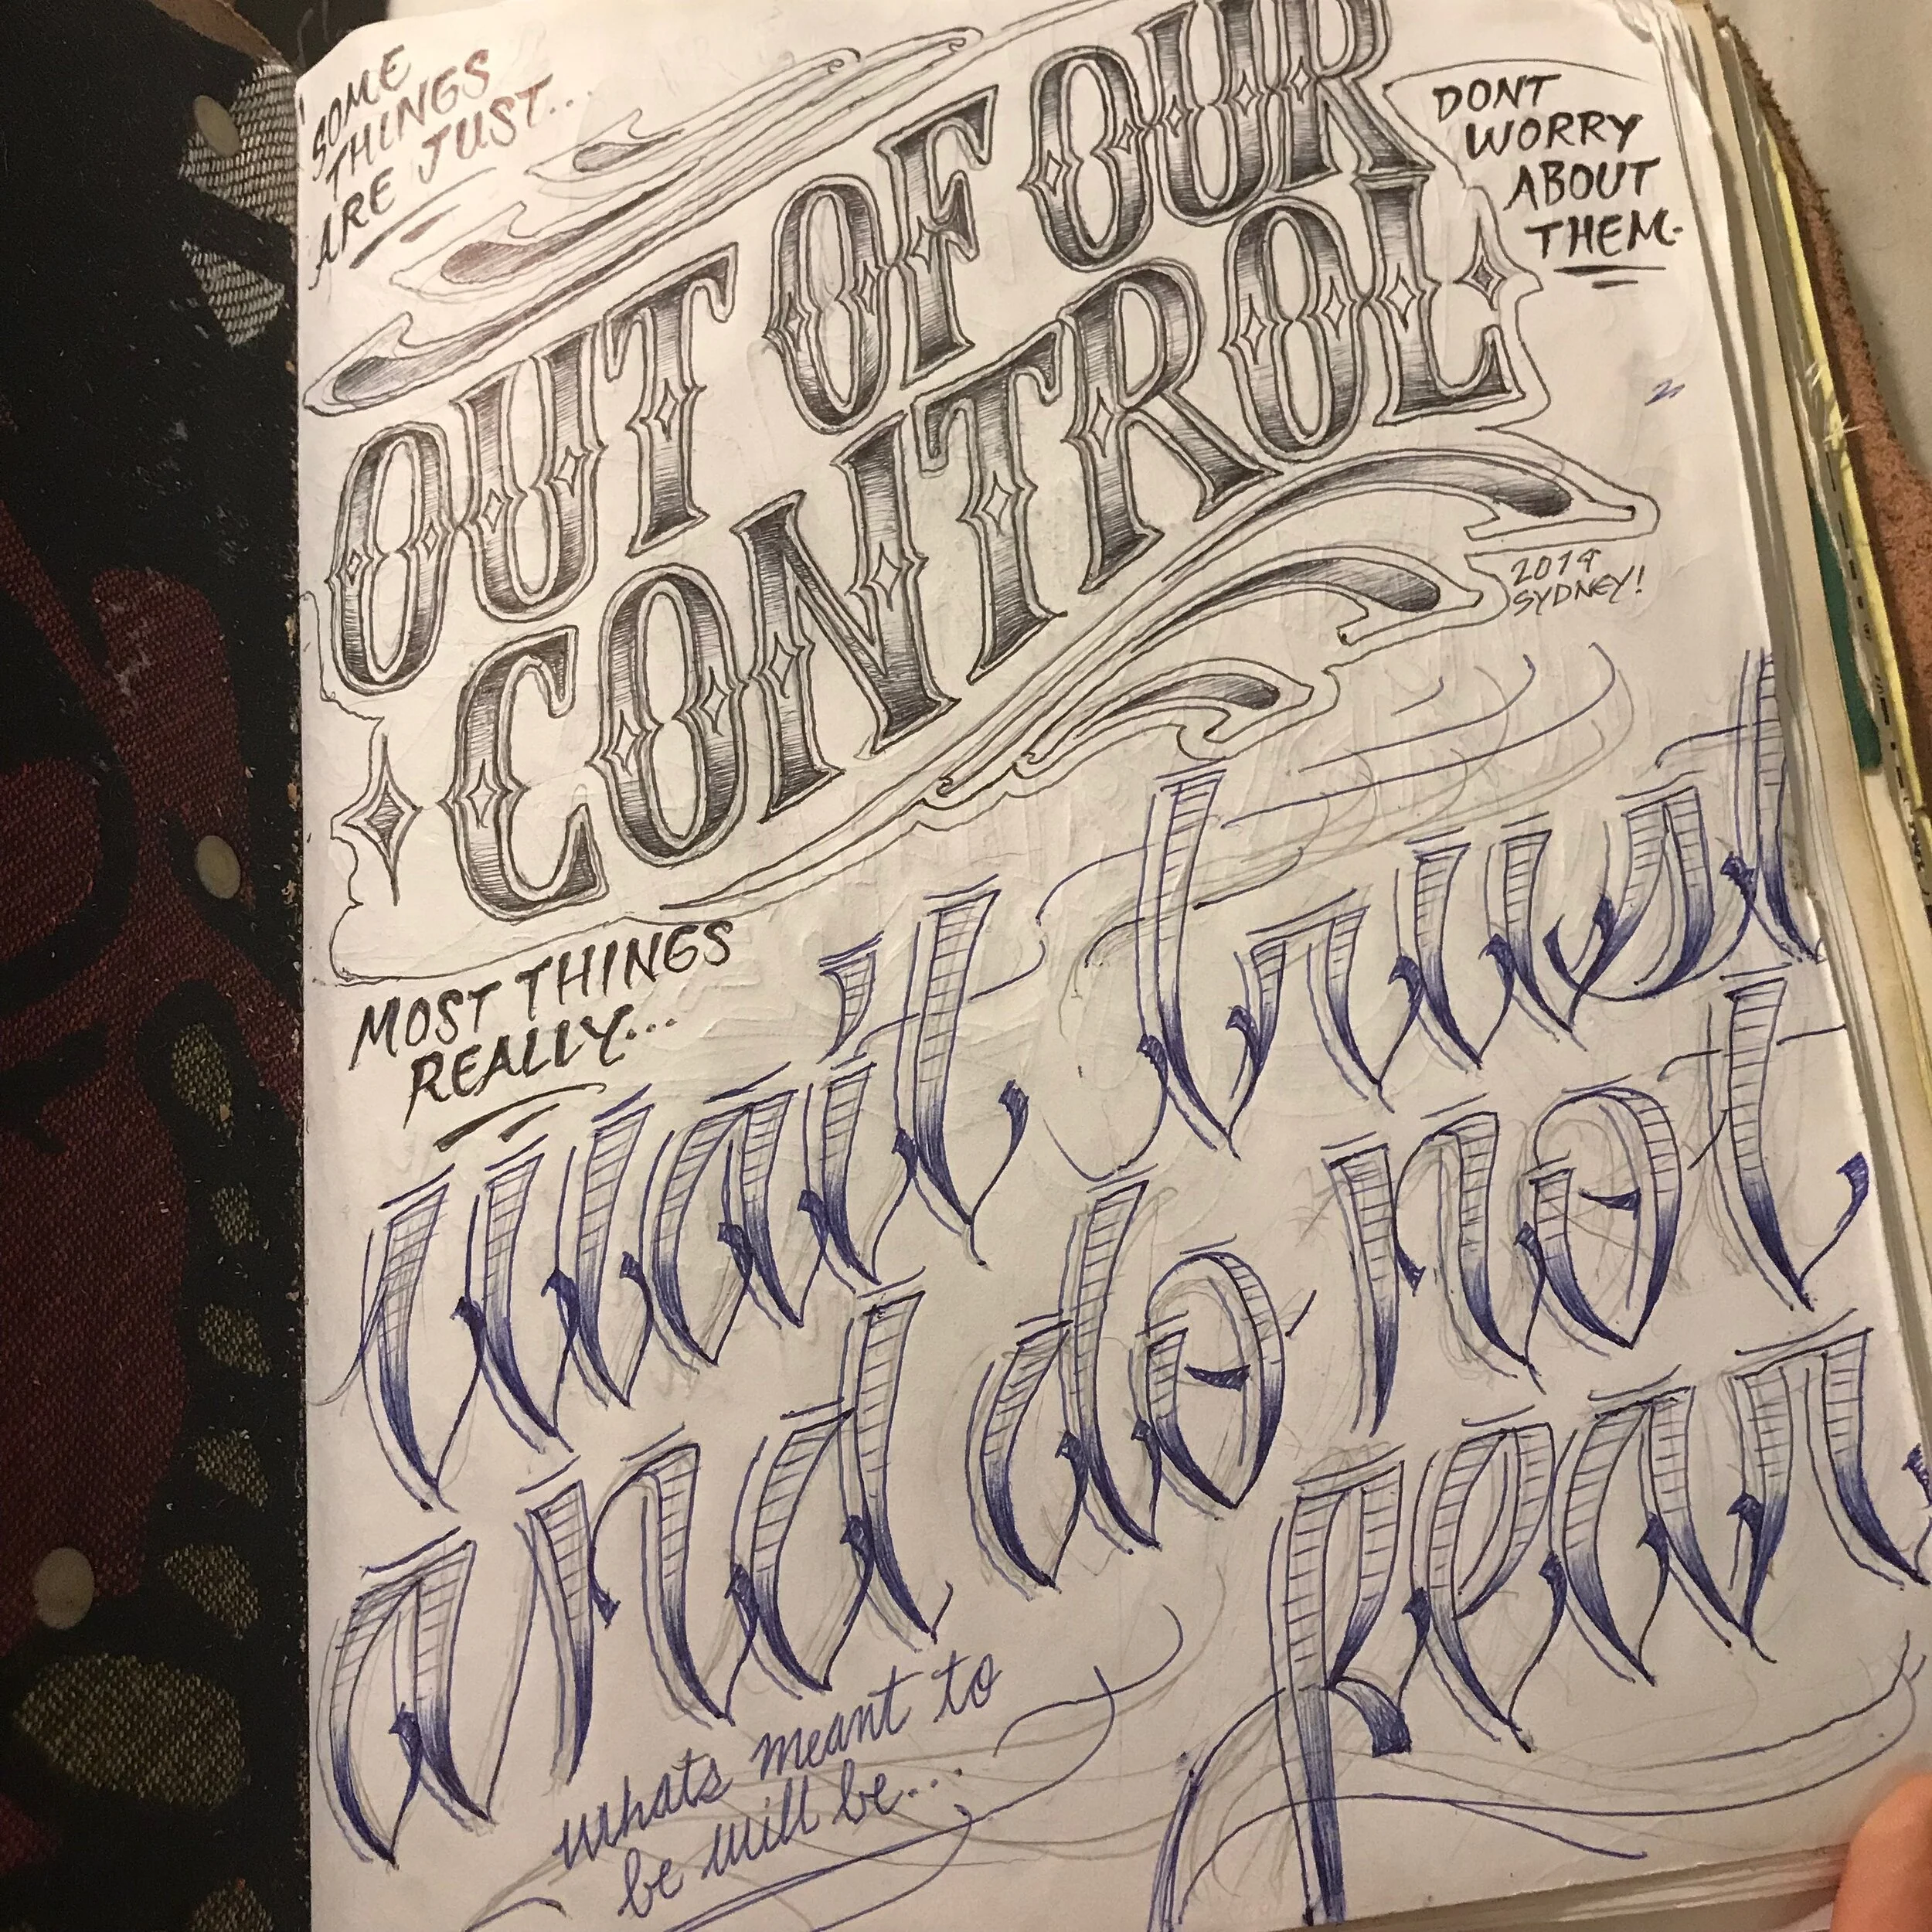 SOME
THINGS
ARE JUST...
OUT OF OUR
CONTROL
DONT
WORRY
ABOUT
THEM.
2019
SYDNEY!
MOST THINGS
REALLY...
wait trust
and do not
fear
whats meant to
be will be...